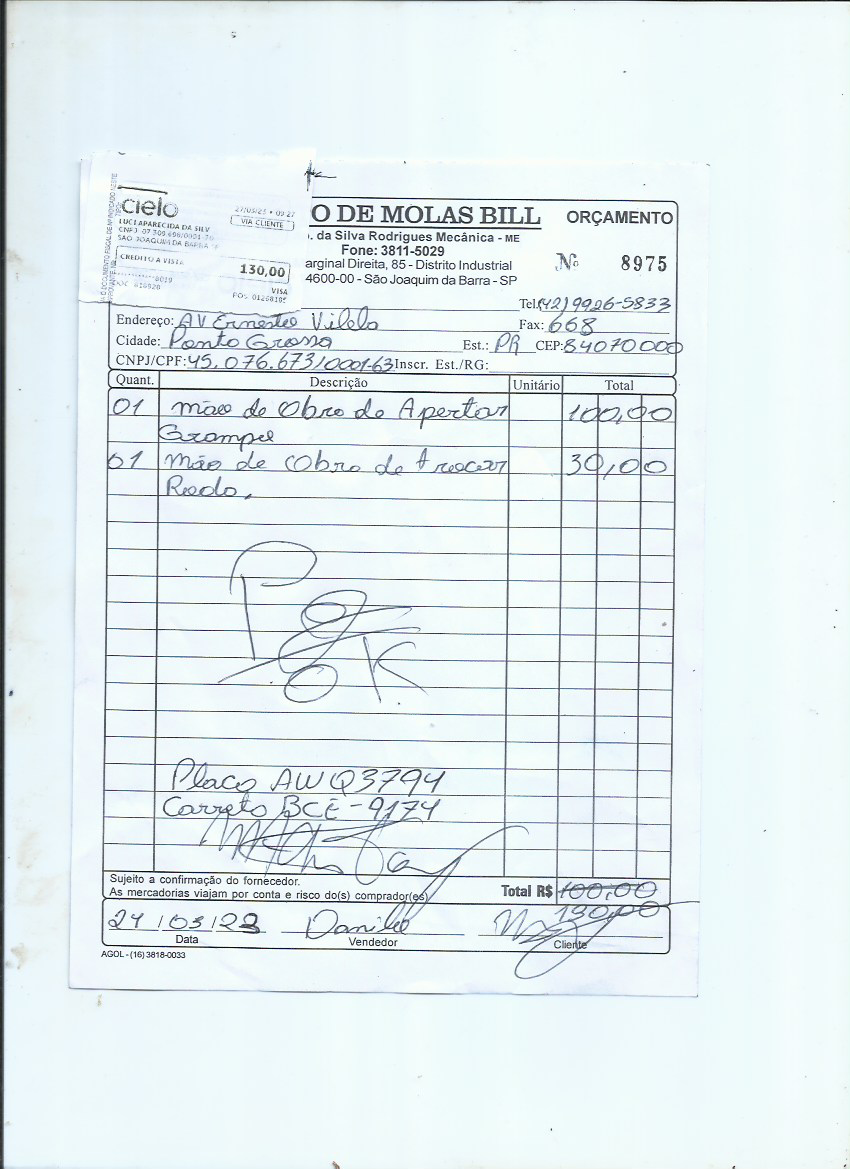 cielo
27/03/23 • 09:27
VIA CLIENTE
LUCI APARECIDA DA SILV
SAO JOAQUIM DA BARRA
CREDITO A VISTA
130,00
VISA
O DE MOLAS BILL
ORÇAMENTO
. da Silva Rodrigues Mecânica - ME
Fone: 3811-5029
arginal Direita, 85 - Distrito Industrial
4600-00 - São Joaquim da Barra - SP
Nº 8975
Tel.(42)9926-5833
Endereço: AV Ernesto Vilela Fax: 668
Cidade: Ponta Grossa Est.: PR CEP: 84070000
CNPJ/CPF: 45.076.673/0001-63 Inscr. Est./RG:
Quant. Descrição Unitário Total
01 mão de Obra de Apertar 100,00
Grampo
01 mão de Obra de trocar 30,00
Roda.
OK
Placa AWQ3794
Carreta BCE-9174
Sujeito a confirmação do fornecedor.
As mercadorias viajam por conta e risco do(s) comprador(es) Total R$ 100,00
130,00
27/03/23 Danilo
Data Vendedor Cliente
AGOL - (16) 3818-0033